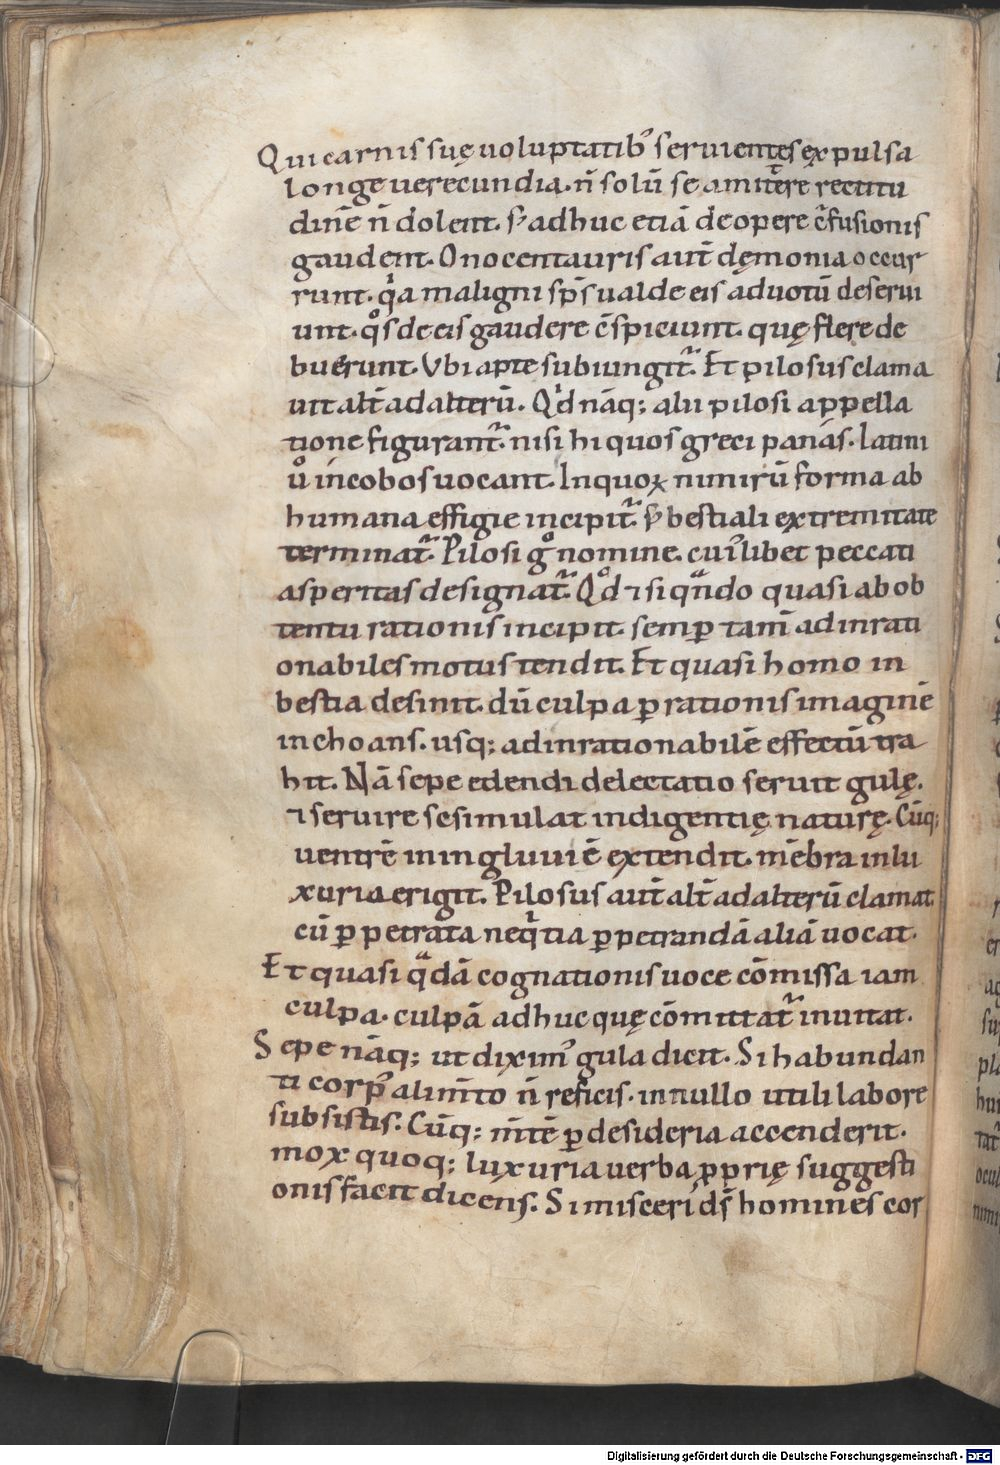 Qui carnis suę uoluptatib᾽ seruientes ęxpulsa
longe uerecundia. n̄ solū se amittere rectitu
dinē n̄ dolent. s; adhuc etiā de opere c̄fusionis
gaudent. Onocentauris aut̄ dęmonia occur
runt. qͥa maligni sp̄s ualde eis ad uotū deserui
unt. qͦs de eis gaudere c̄spiciunt. quę flere de
buerunt. Vbi apte subiungit᷑. Et pilosus clama
uit alt̄ ad alterū. Qͥd nāq; alii pilosi appella
tione figurant᷑. nisi hi quos greci panas. latini
uͦ incobos uocant. Inquoꝝ nimirū forma ab
humana effigie incipit᷑. s; bestiali extremitate
terminat᷑. Pilosi gͦ nomine. cui᾽libet peccati
asperitas designat᷑. Qͦd ⁊ si qͣndo quasi ab ob
tentu rationis incipit. semꝑ tam̄ ad inrati
onabiles motus tendit. Et quasi homo in
bestia desinit. dū culpa ꝑ rationis imaginē
inchoans. usq; ad inrationabilē effectū tra
hit. Nā sepe edendi delectatio seruit gulę.
⁊ seruire se simulat indigentię naturę. Cūq;
uentrē in ingluuiē extendit. mēbra in lu
xuria erigit. Pilosus aut̄ alt̄ ad alterū clamat.
cū ꝑpetrata neqͥtia ꝑpetrandā aliā uocat.
Et quasi qͣdā cognationis uoce cōmissa iam
culpa. culpā adhuc quę cōmittat᷑ inuitat.
Sepe nāq; ut dixim᾽ gula dicit. Si habundan
ti corp᾽ alim̄to n̄ reficis. in nullo utili labore
subsistis. Cūq; m̄tē ꝑ desideria accenderit.
mox quoq; luxuria uerba ꝓprię suggesti
onis facit dicens. Si misceri ds̄ homines cor
Digitalisierung gefördert durch die Deutsche Forschungsgemeinschaft - DFG